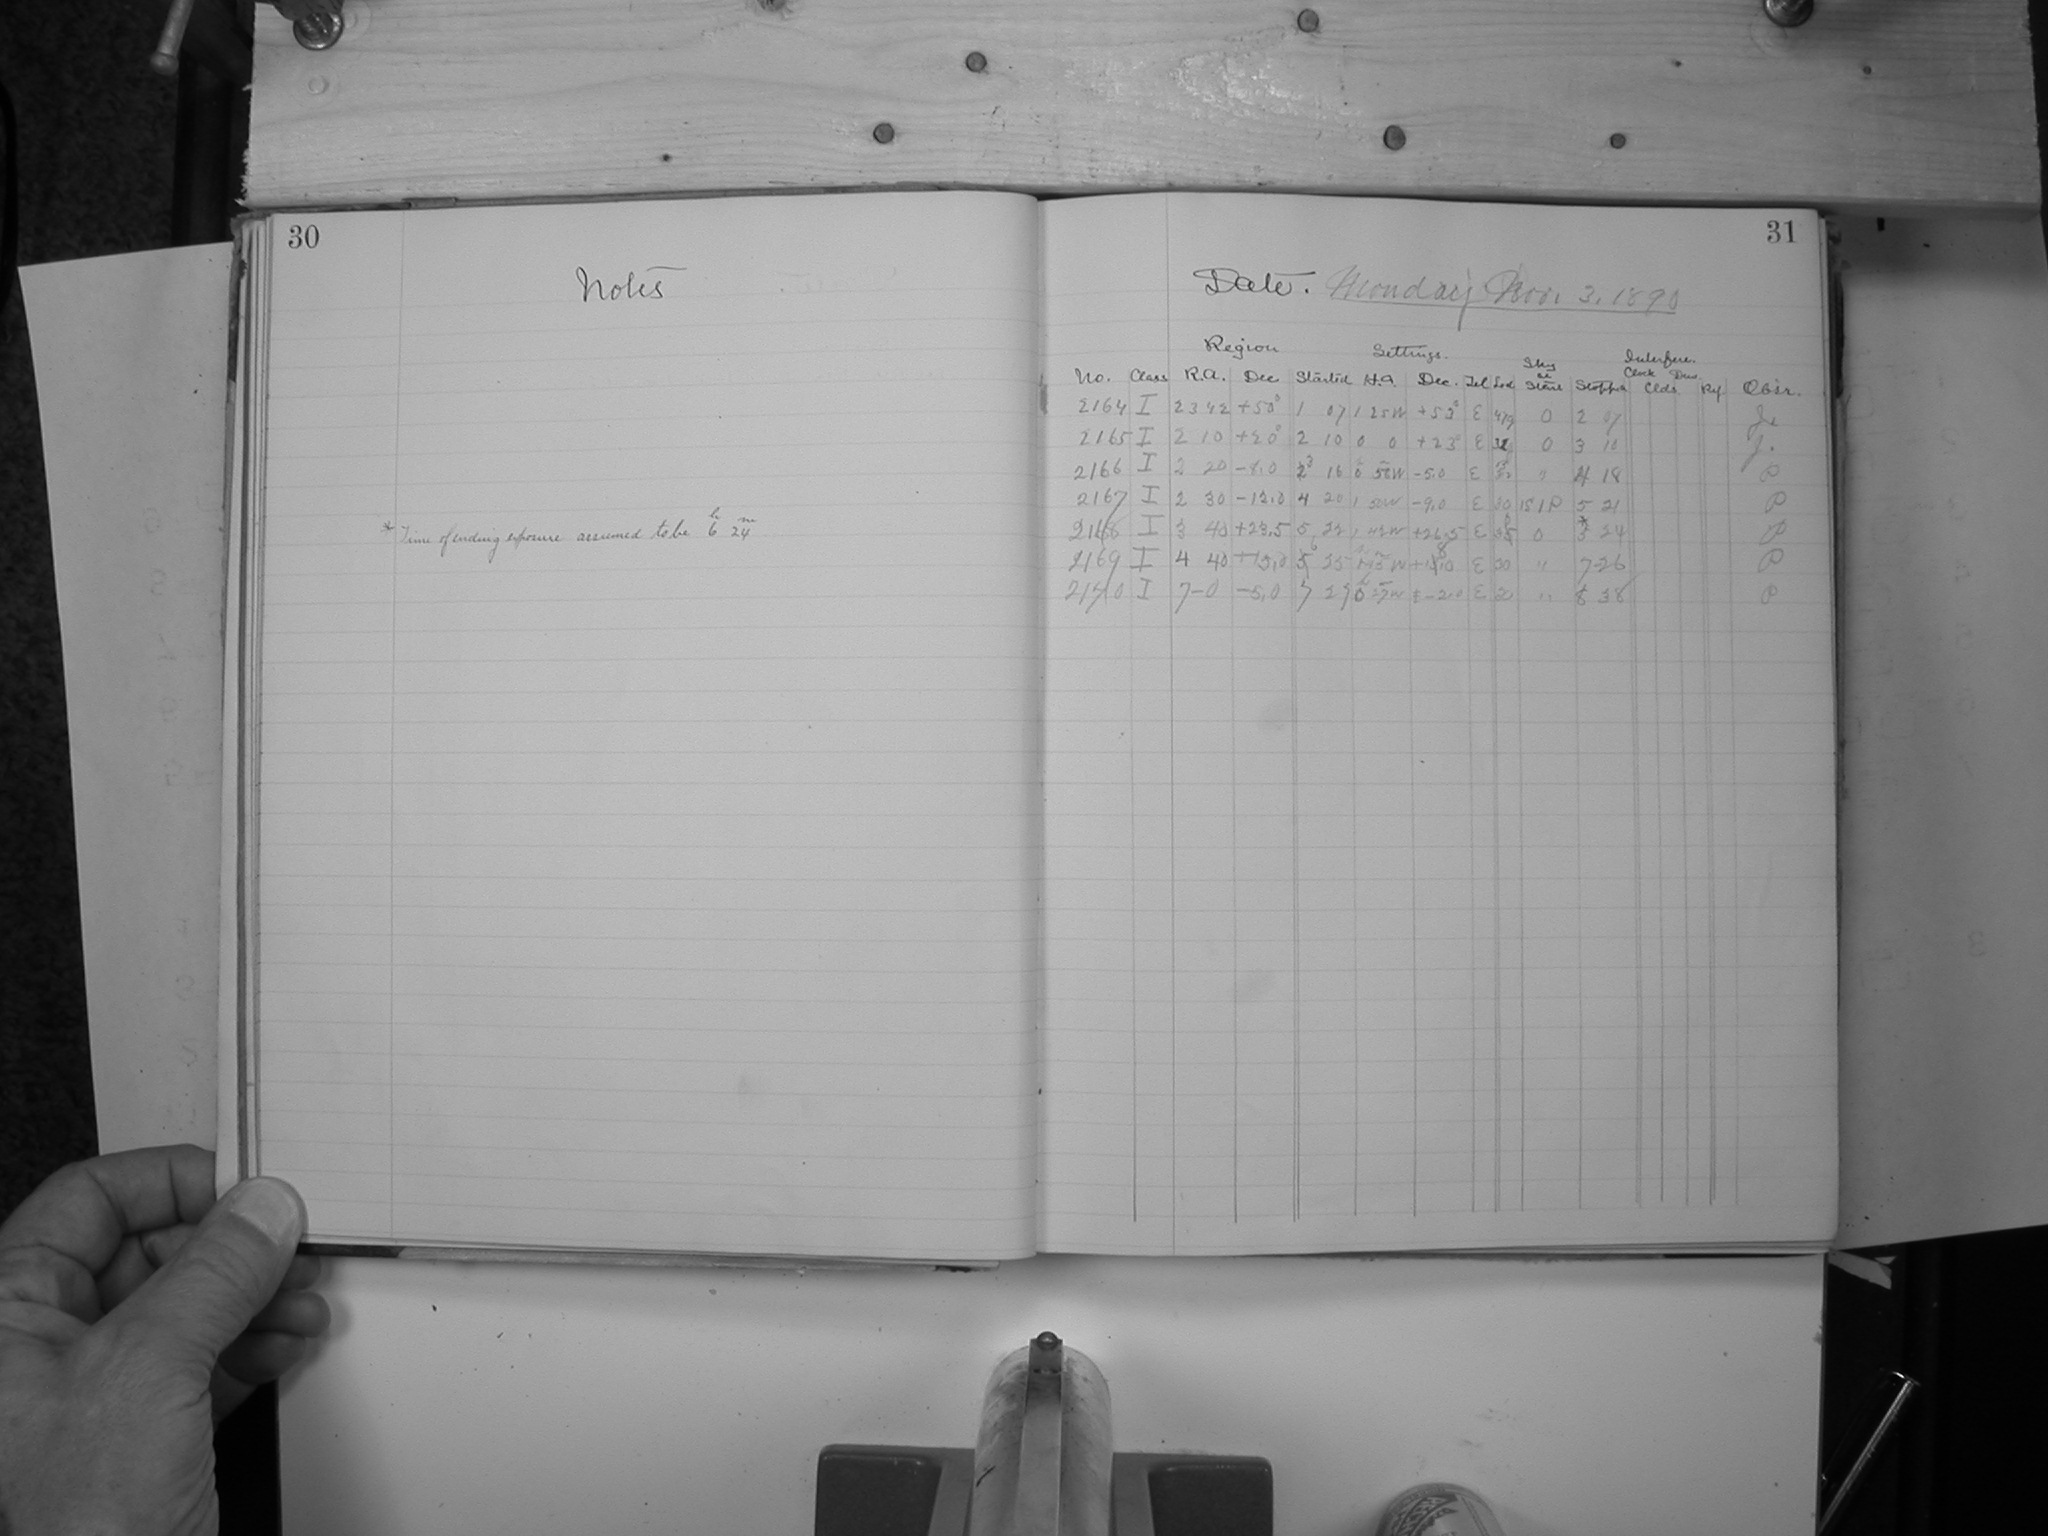 30
Notes
* Time of ending exposure assumed to be 6h 24m
31
Date. Monday Nov. 3, 1890
Region Settings. Sky Interfere.
No. Class R.A. Dec Started H.A. Dec. Tel Led at Start Stopped Clock Clds Dew Ry Obsr.
2164 I 23 42 +50° 1 07 1 25W +53° E 0 2 07
2165 I 2 10 +20° 2 10 0 0 +23° E 0 3 10 J.
2166 I 2 20 -8.0 3 16 0 56W -5.0 E " 4 18 P
2167 I 2 30 -12.0 4 20 1 50W -9.0 E 30 5 21 P
2168 I 3 40 +23.5 5 22 1 42W +26.5 E 0 * 5 24 P
2169 I 4 40 +15.0 6 25 W E 30 " 7-26 P
2170 I 7-0 -5.0 7 29 0 W -2.0 E " 8 38 P